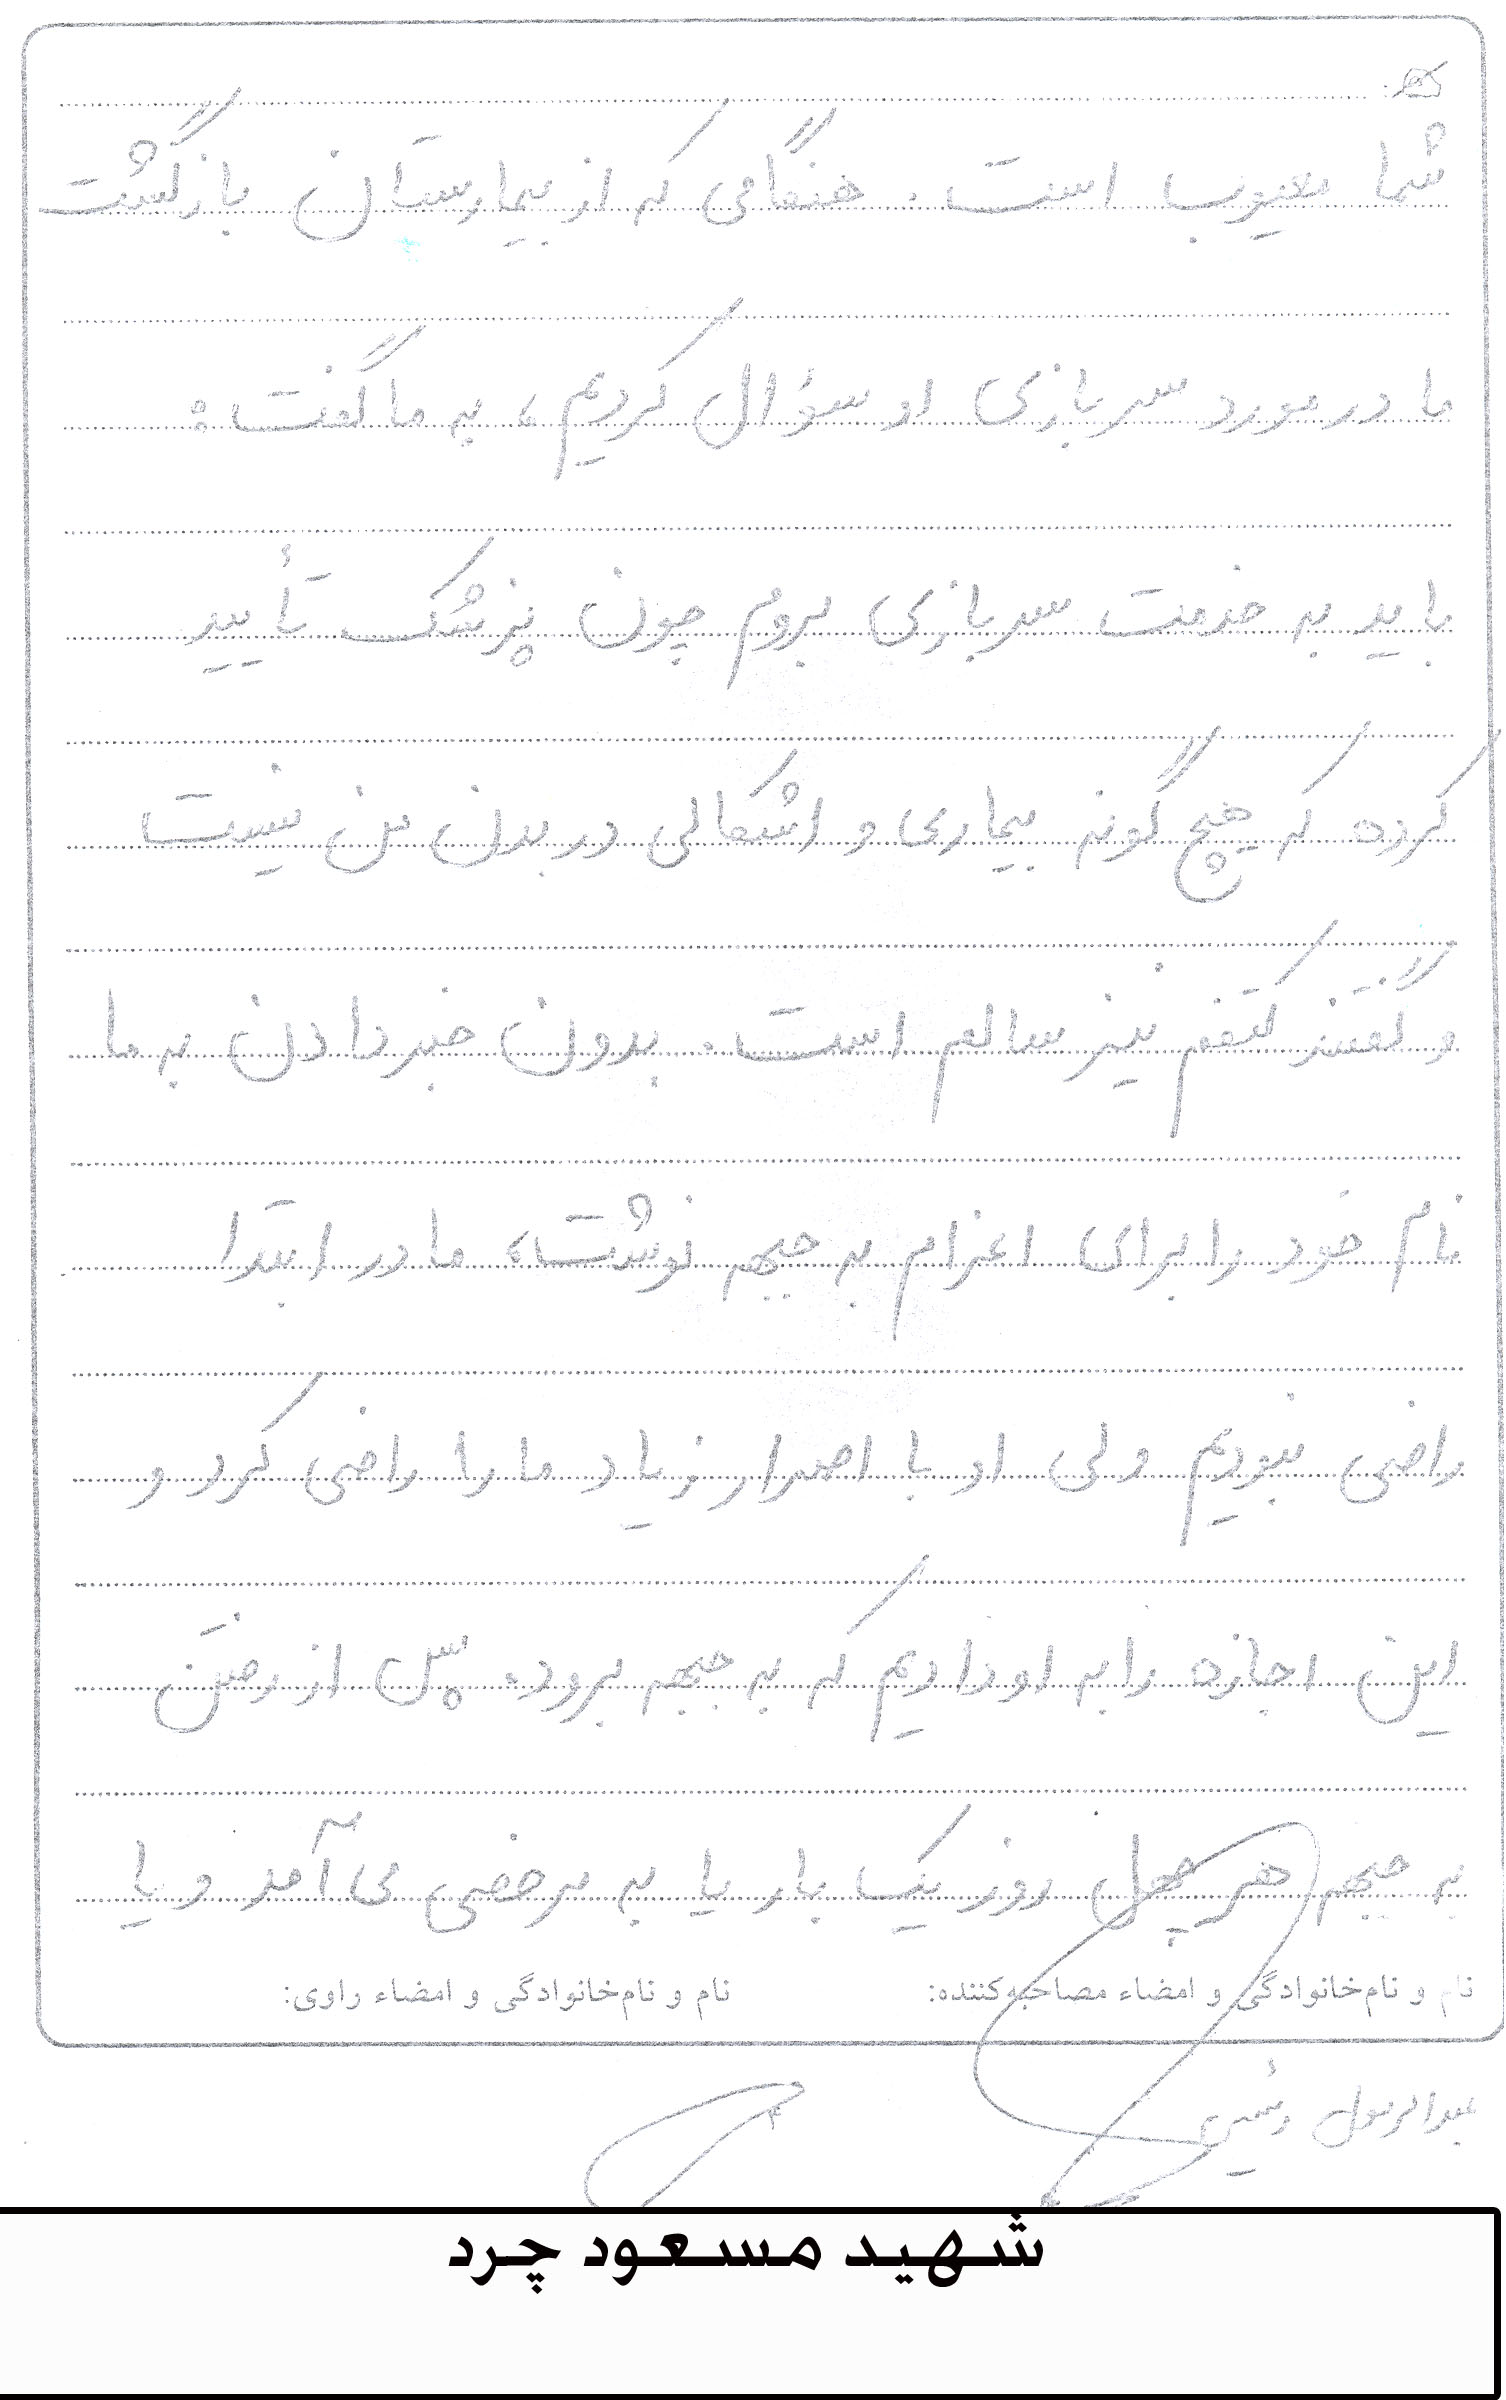 شما معیوب است. هنگامی که از بیمارستان بازگشت
ما در مورد سربازی او سؤال کردیم، به ما گفت:
باید به خدمت سربازی بروم چون پزشک تأیید
کرده که هیچ گونه بیماری و اشکالی در بدن من نیست
و گفتند کتفم نیز سالم است. بدون خبر دادن به ما
نام خود را برای اعزام به جبهه نوشت، ما در ابتدا
راضی نبودیم ولی او با اصرار زیاد ما را راضی کرد و
این اجازه را به او دادیم که به جبهه برود. پس از رفتن
به جبهه هر چهل روز یک بار یا به مرخصی می‌آمد و یا
نام و نام‌خانوادگی و امضاء مصاحبه‌کننده: نام و نام‌خانوادگی و امضاء راوی:
عبدالرسول
شهید مسعود چرد